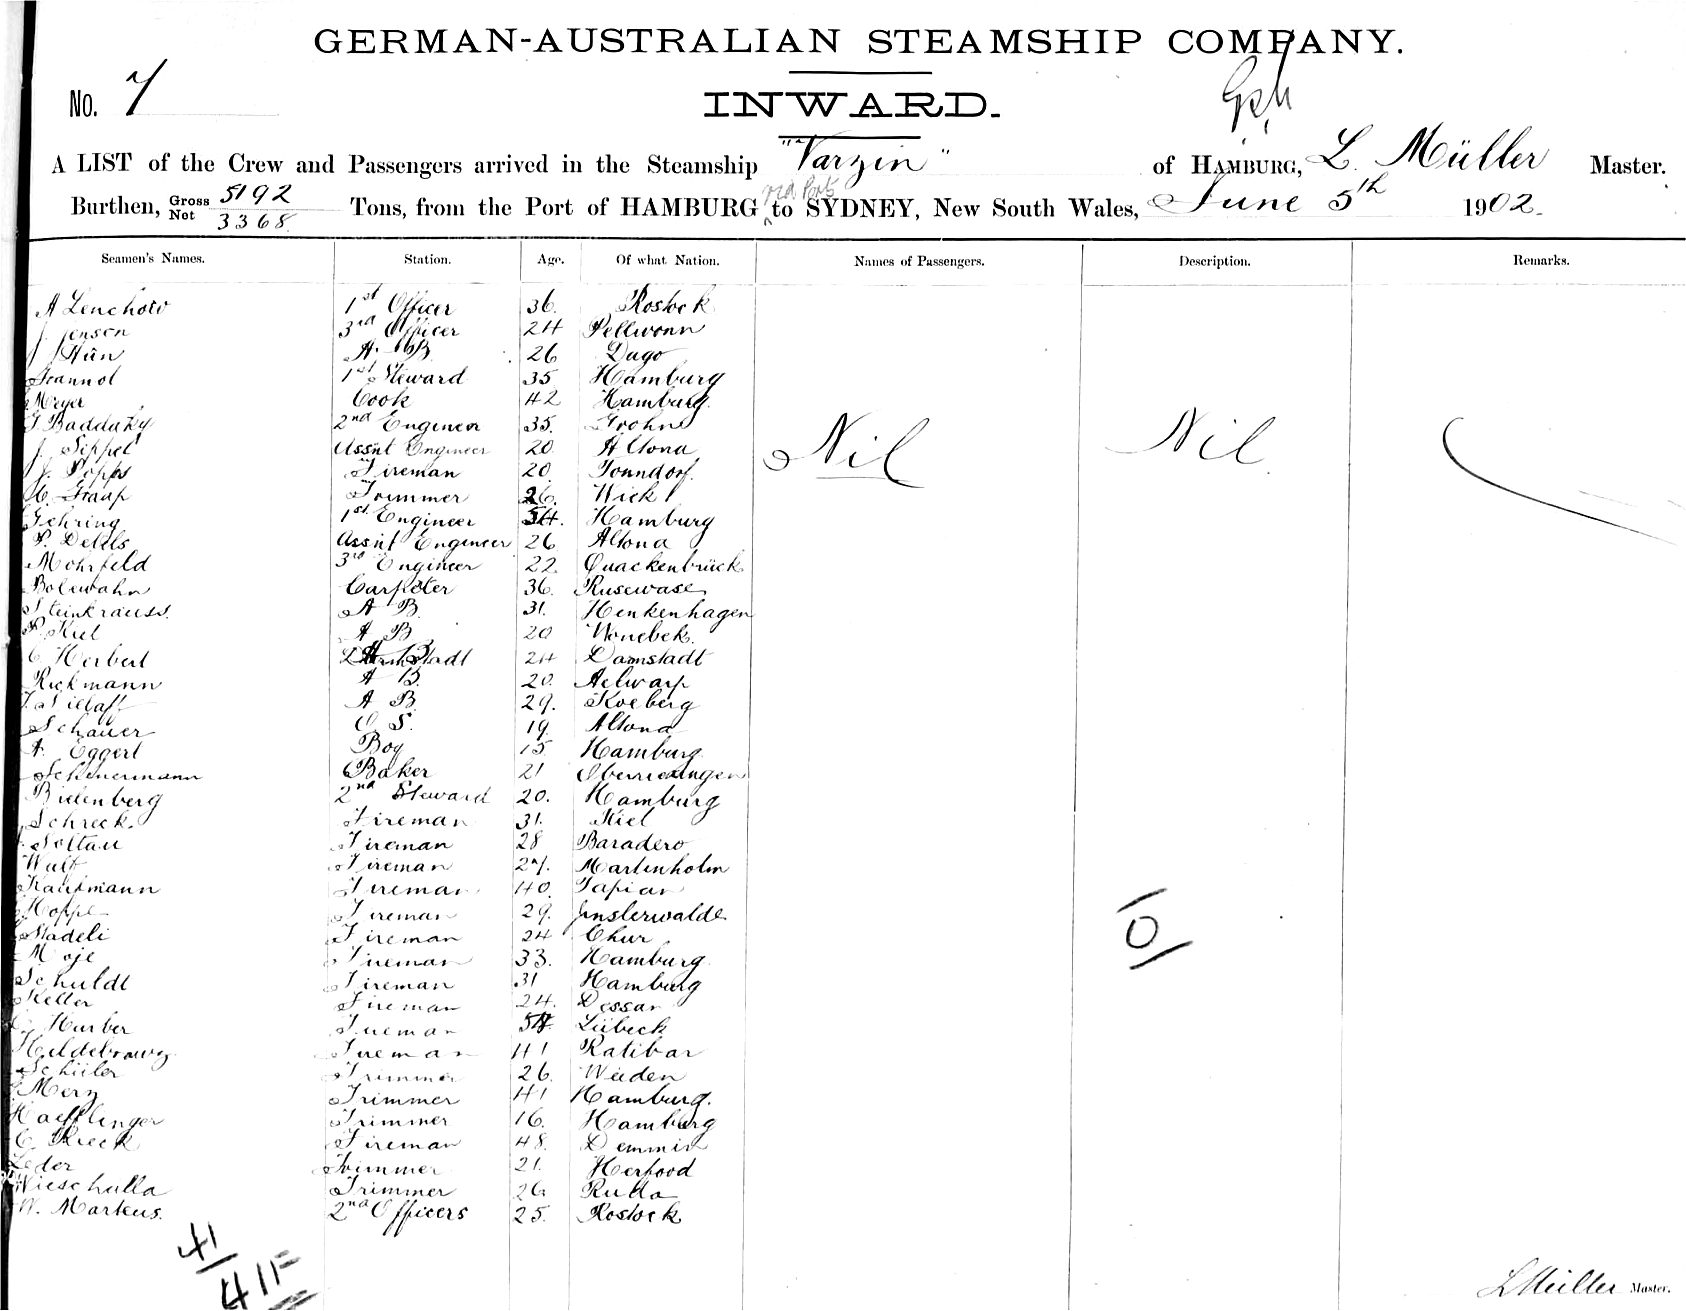 GERMAN-AUSTRALIAN STEAMSHIP COMPANY.
No. 7
INWARD.
A LIST of the Crew and Passengers arrived in the Steamship "Varzin" of HAMBURG, L. Müller Master.
Burthen, Gross 5192 Not 3368 Tons, from the Port of HAMBURG to SYDNEY, New South Wales, June 5th 1902.
Seamen's Names. Station. Age. Of what Nation. Names of Passengers. Description. Remarks.
A Lenchow 1st Officer 36. Rostock
J. Jensen 3rd Officer 24 Pellworm
J Hün A. B. 26 Dago
1st Steward 35 Hamburg
Meyer Cook 42 Hamburg.
2nd Engineer 35. Grohn
J. Sippel Assnt Engineer 20 Altona
J. Popps Fireman 20. Tonndorf.
Graap Trimmer 26. Wick
Gehring 1st Engineer 54. Hamburg
P. Detels Assnt Engineer 26 Altona
Mohrfeld 3rd Engineer 22. Quackenbrück
Bolwahn Carpeter 36. Rusewase
Steinkrauss. A B. 31. Henkenhagen
P. Kiel A B 20 Wonebek.
C Herbert A B 24 Damstadt
Rickmann A B. 20.
A B. 29. Koeberg
Schauer O S. 19. Altona
A. Eggert Boy 15 Hamburg.
Scheuermann Baker 21
Bielenberg 2nd Steward 20. Hamburg
Schreck. Fireman 31. Kiel
Soltau Fireman 28 Baradero
Wulf Fireman 27. Martenholm
Kaufmann Fireman 40. Tapian
Hoppe Fireman 29.
Stadeli Fireman 24 Chur
Moje Fireman 33. Hamburg.
Schuldt Fireman 31 Hamburg
Keller Fireman 24. Dessar
Hurber Fireman Lübeck
Fireman 41 Ratibar
Schüler Trimmer 26. Weiden
Merz Trimmer 41 Hamburg.
Haefflinger Trimmer 16. Hamburg
C. Rieck Fireman 48. Demmin
Leder Trimmer 21. Herford
Wieschalla Trimmer 26 Ruda
W. Markus. 2nd Officers 25. Rostock
Nil Nil
41
41
L Müller Master.